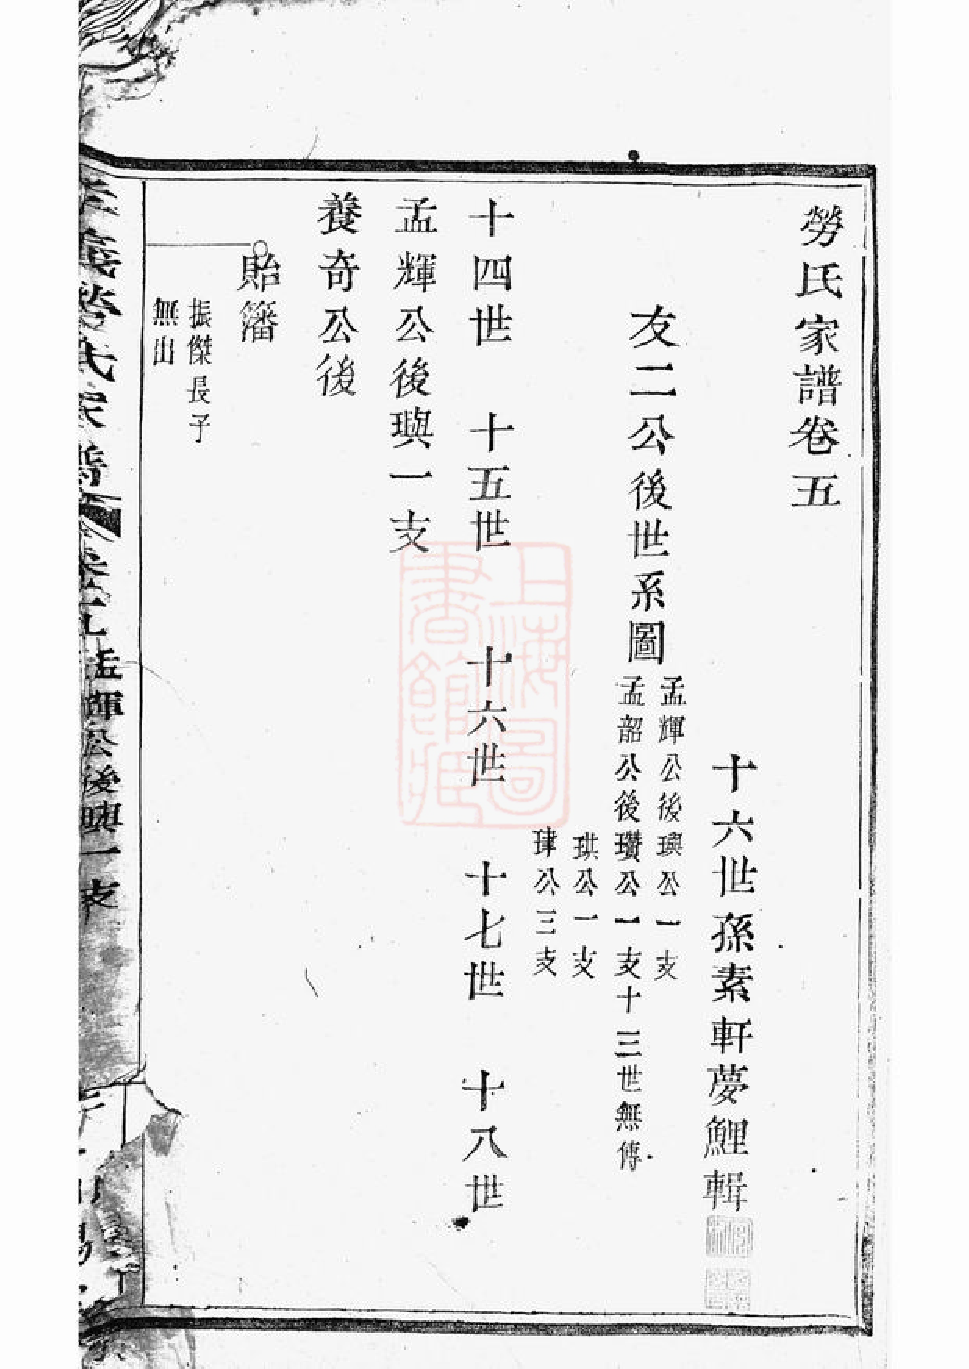 勞氏家譜卷五
十六世孫素軒夢鯉輯
友二公後世系圖
孟輝公後璵公一支
孟韶公後瓚公一支十三世無傳
珙公一支
肂公三支
十四世 十五世 十六世 十七世 十八世
孟輝公後璵一支
養奇公後
貽籓
振傑長子
無出
義勞氏家譜
孟輝公後璵一支
上海圖
書館藏